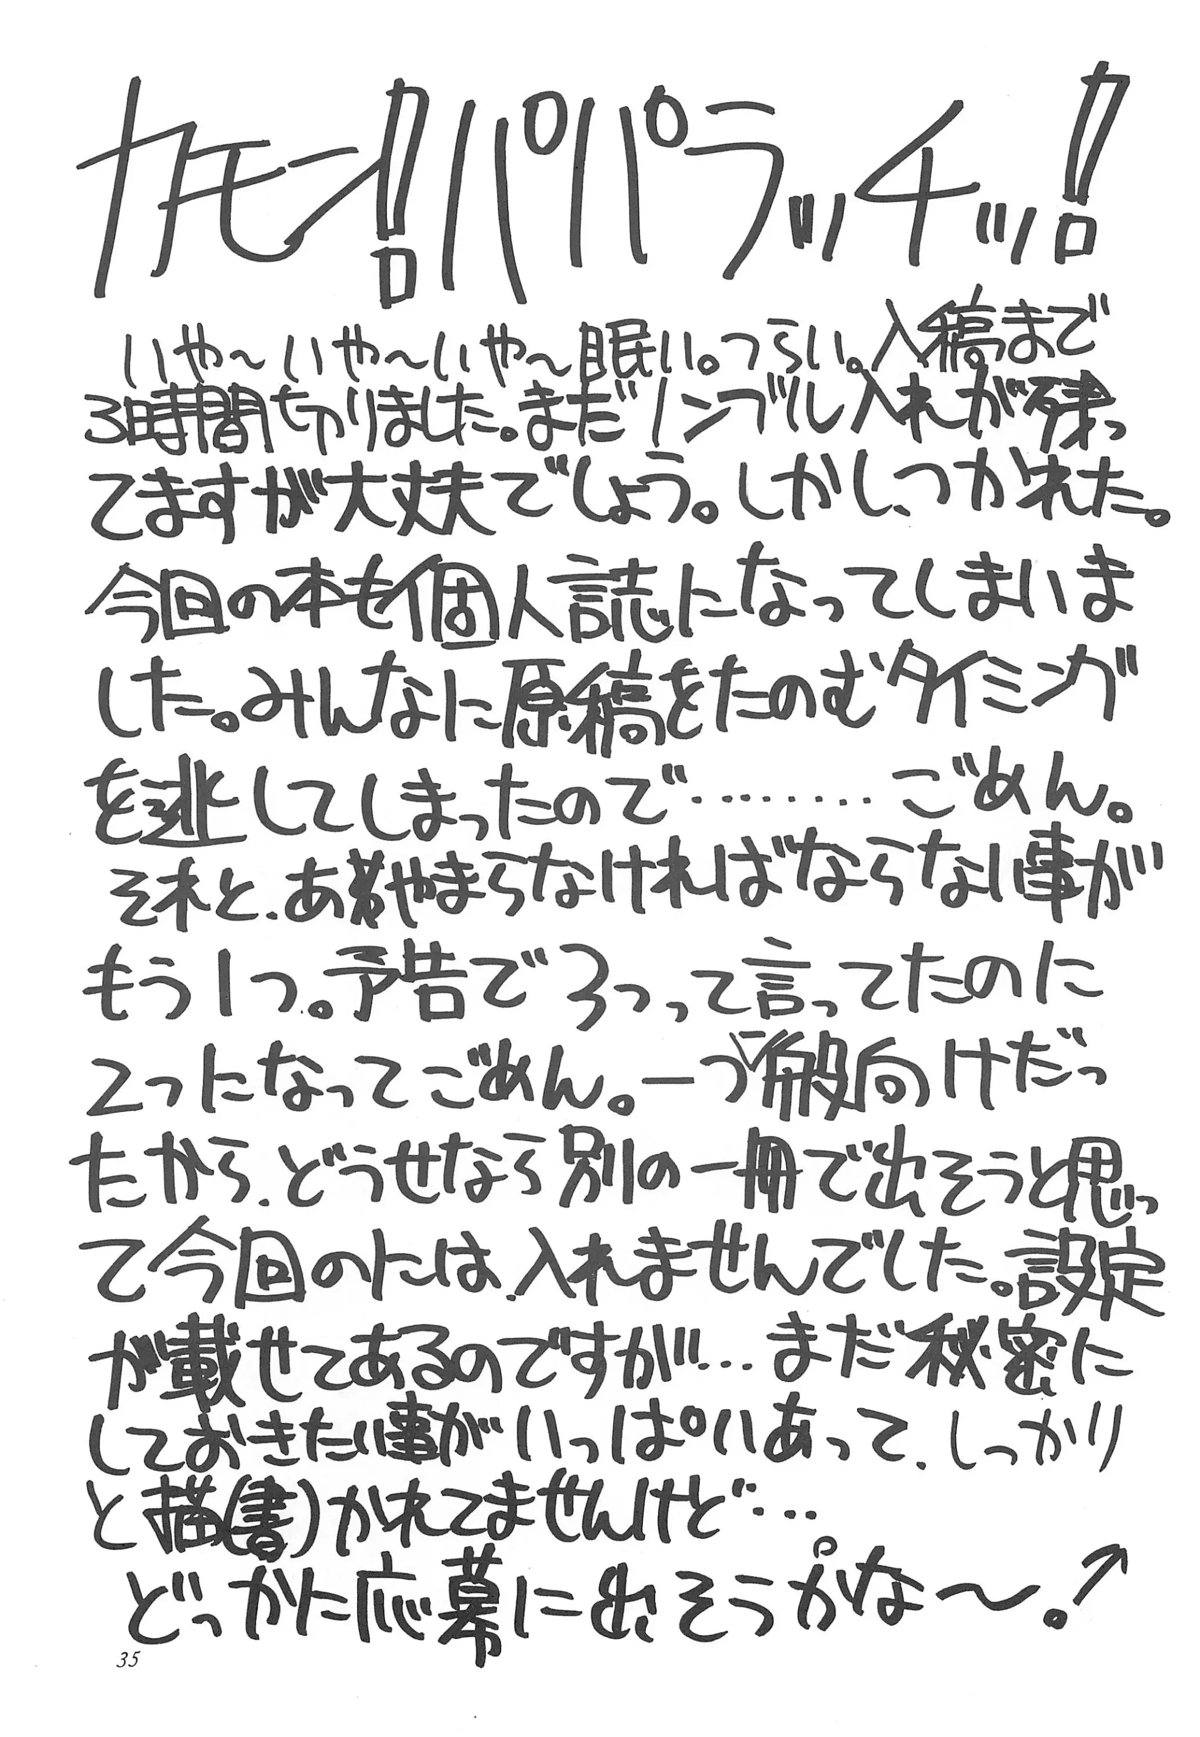 カモン!パパラッチッ!
いや〜いや〜いや〜眠い。つらい。入稿まで
3時間切りました。まだノンブル入れが残っ
てますが大丈夫でしょう。しかし、つかれた。
今回の本も個人誌になってしまいま
した。みんなに原稿をたのむタイミング
を逃してしまったので………ごめん。
それと、あやまらなければならない事が
もう1つ。予告で3つって言ってたのに
2つになってごめん。一つ一般向けだっ
たから、どうせなら別の一冊で出そうと思っ
て今回のには、入れませんでした。設定
が載せてあるのですが…まだ秘密に
しておきたい事がいっぱいあって、しっかり
と描(書)かれてませんけど…。
どっかに応募に出そうかな〜。↗
35